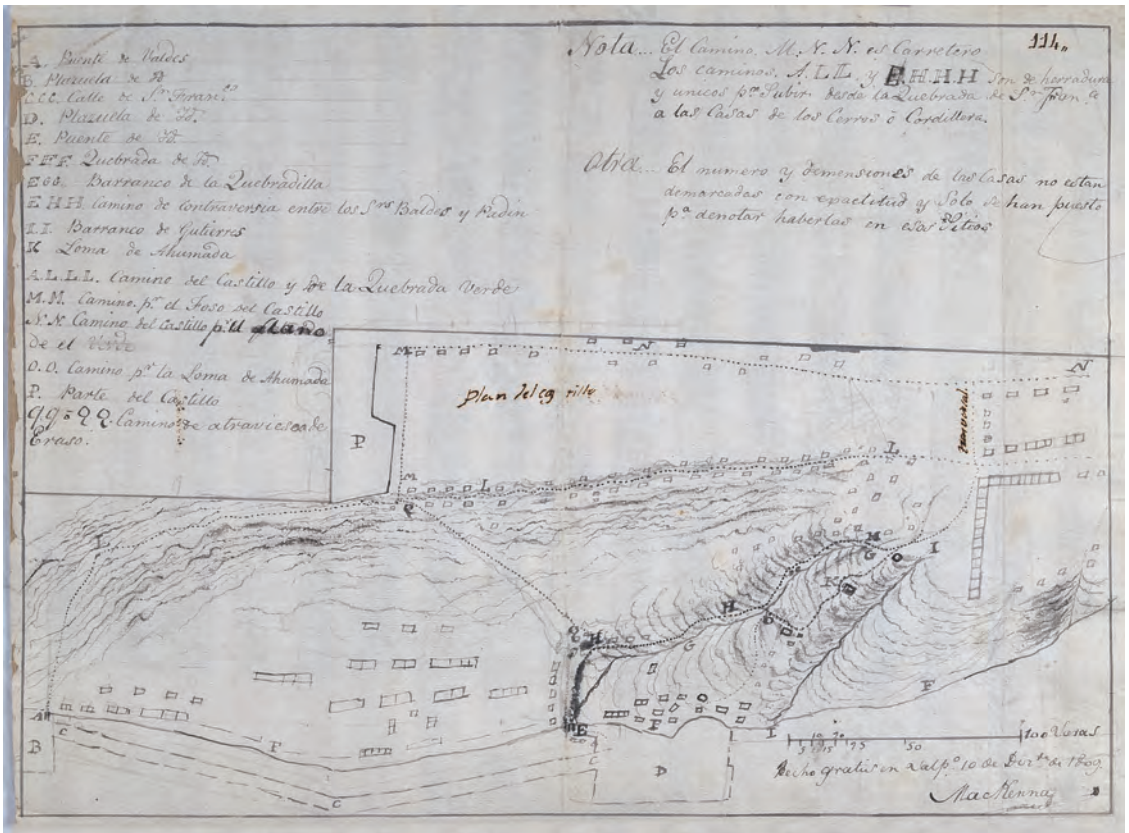 A. Puente de Valdes
B. Plazuela de Id
C.C.C. Calle de Sn. Franco.
D. Plazuela de Id.
E. Puente de Id
F F F. Quebrada de Id
E G G. Barranco de la Quebradilla
E H H. Camino de contraversia entre los Srs Baldes y Fadin
I.I. Barranco de Gutierres
K Loma de Ahumada
A.L.L.L. Camino del Castillo y de la Quebrada Verde
M.M. Camino pr. el Foso del Castillo
N.N. Camino del Castillo pr. el
de el Verde
O.O. Camino pa. la Loma de Ahumada
P. Parte del Castillo
Q Q Q Q. Camino de atraviesa de
Eraso.
Nota... El Camino. M. N. N. es Carretero
Los caminos. A. L L L. y E.H.H.H son de herradura
y unicos pa. Subir desde la Quebrada de Sn. Franco
a las Casas de los Cerros ó Cordillera.
Otra... El numero y dimensiones de las Casas no estan
demarcadas con exactitud y Solo se han puesto
pa. denotar haberlas en esos Sitios
114.
M
N
N
Plan del castillo
P
M
L
L
Q
L
M
G
O
I
K
H
H
O
G
Q
H
F
O
F
I
A
B
C
F
C
E
C
C
D
5 10 15 20 25 50 100 Varas
Hecho gratis en Valpo. 10 de Dizre de 1809
MacKenna